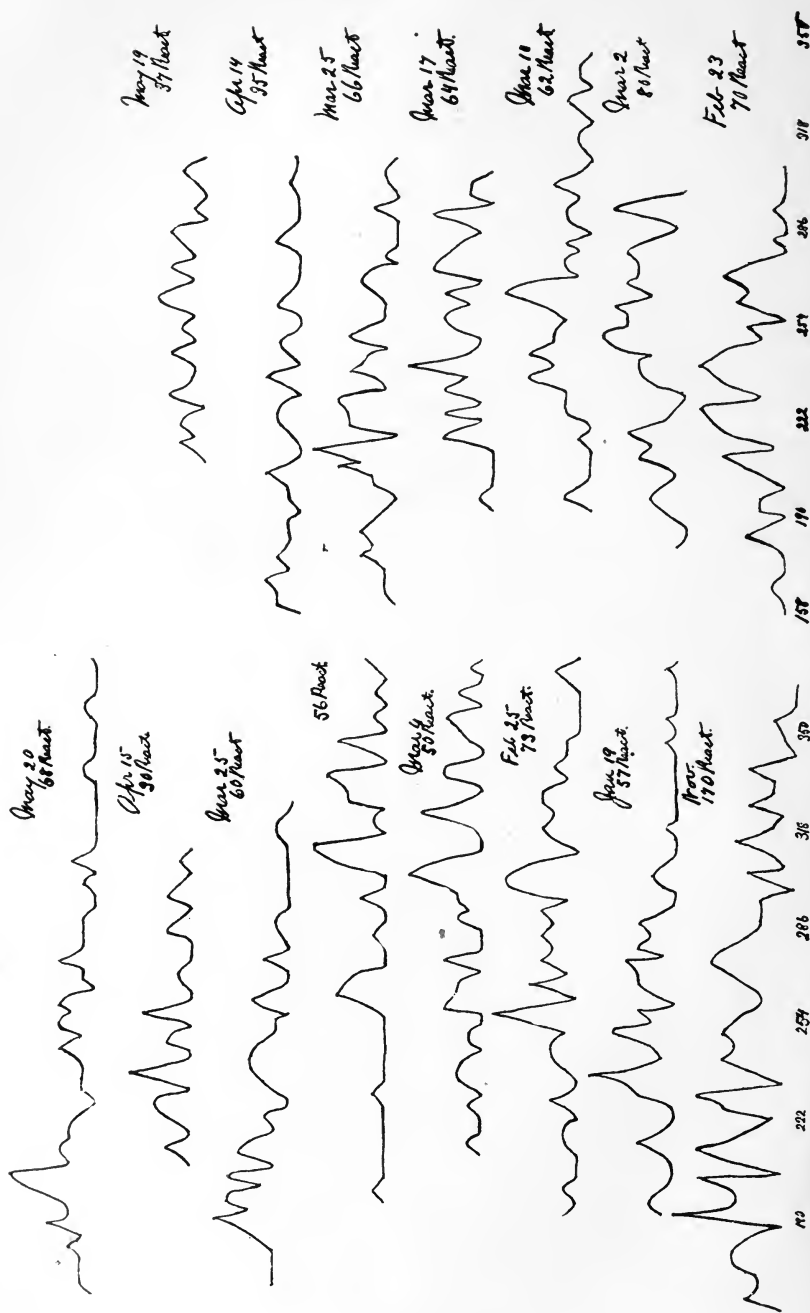 May 20
68 React.
Apr 15
90 React.
Mar 25
60 React
56 React
Mar 4
50 React.
Feb 25
73 React.
Jan 19
57 React.
Nov.
190 React.
190 222 254 286 318 350
May 19
37 React
Apr 14
35 React
Mar 25
66 React
Mar 17
64 React.
Mar 10
62 React
Mar 2
80 React
Feb 23
70 React
158 190 222 254 286 318 350